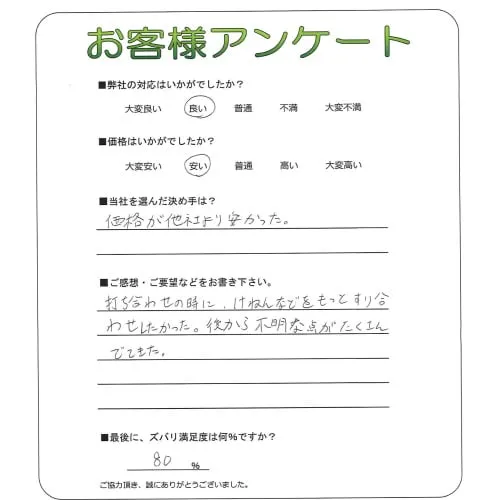 お客様アンケート
■弊社の対応はいかがでしたか?
大変良い 良い 普通 不満 大変不満
■価格はいかがでしたか?
大変安い 安い 普通 高い 大変高い
■当社を選んだ決め手は?
価格が他社より安かった。
■ご感想・ご要望などをお書き下さい。
打ち合わせの時に、けねんなどをもっとすり合
わせしたかった。後から不明な点がたくさん
でてきた。
■最後に、ズバリ満足度は何%ですか?
80 %
ご協力頂き、誠にありがとうございました。